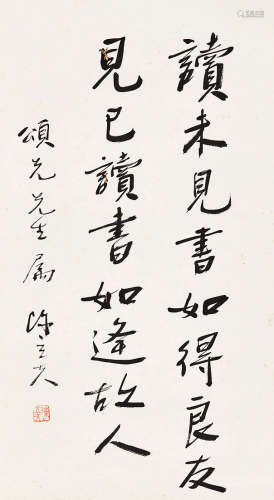 讀未見書如得良友
見已讀書如逢故人
頌先先生屬